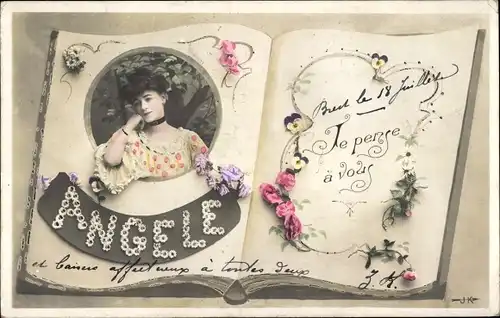 ANGELE
Brest le 18 Juillet
Je pense
à vous
et baisers affectueux à toutes deux
J.K